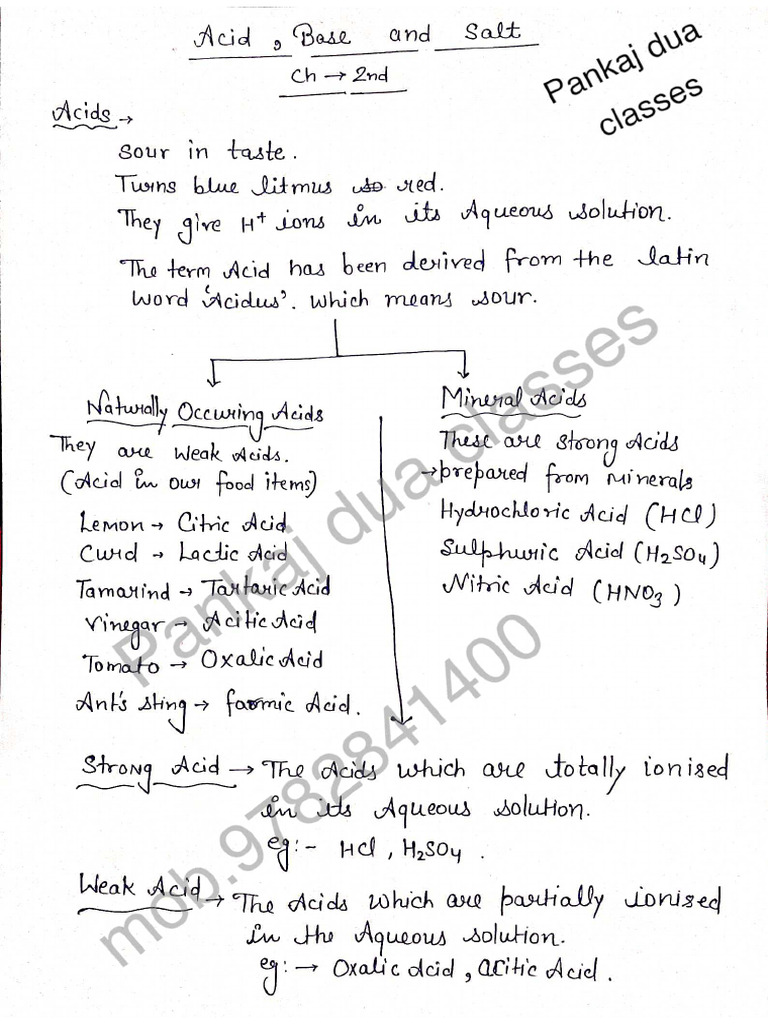 Acid, Base and Salt
Ch → 2nd
Pankaj dua
classes
Acids →
Sour in taste.
Turns blue litmus so red.
They give H+ ions in its Aqueous solution.
The term Acid has been derived from the latin
word 'Acidus'. which means sour.
Naturally Occuring Acids
They are Weak Acids.
(Acid in our food items)
Lemon → Citric Acid
Curd → Lactic Acid
Tamarind → Tartaric Acid
Vinegar → Acitic Acid
Tomato → Oxalic Acid
Ant's sting → formic Acid.
Mineral Acids
These are strong Acids
→ prepared from Minerals
Hydrochloric Acid (HCl)
Sulphuric Acid (H2SO4)
Nitric Acid (HNO3)
Strong Acid → The Acids which are totally ionised
in its Aqueous solution.
eg:- HCl, H2SO4.
Weak Acid → The Acids which are partially ionised
in the Aqueous solution.
eg: → Oxalic Acid, acitic Acid.
Pankaj dua classes
mob.9782841400